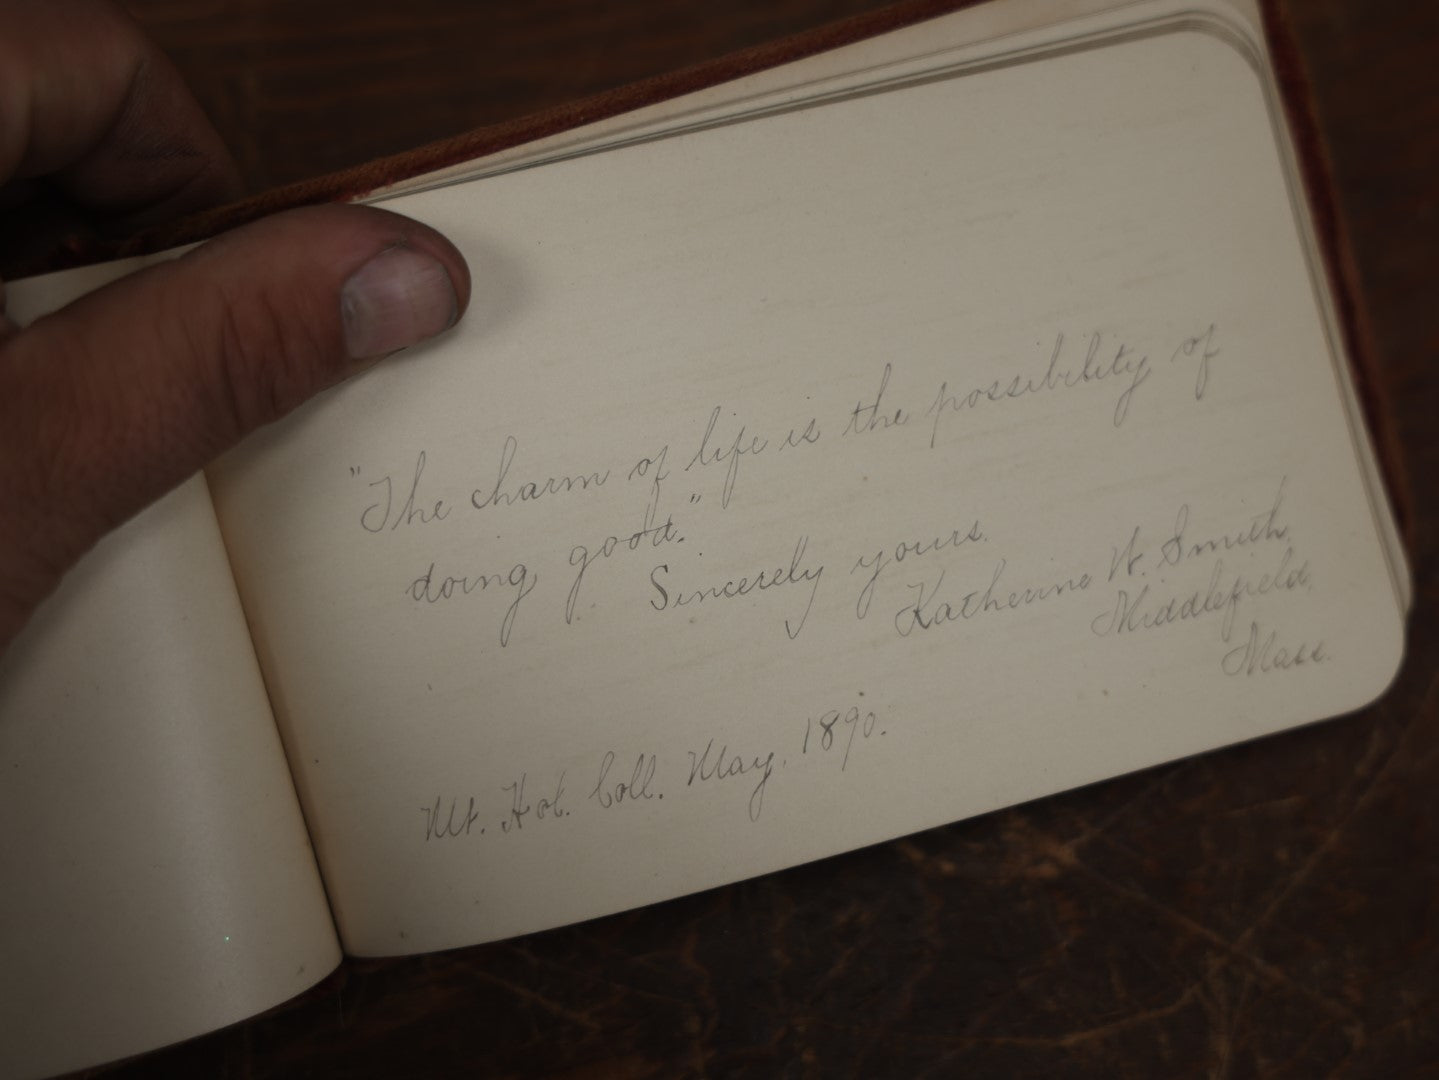 "The charm of life is the possibility of
doing good."
Sincerely yours.
Katherine W. Smith.
Middlefield,
Mass.
Mt. Hol. Coll. May, 1890.